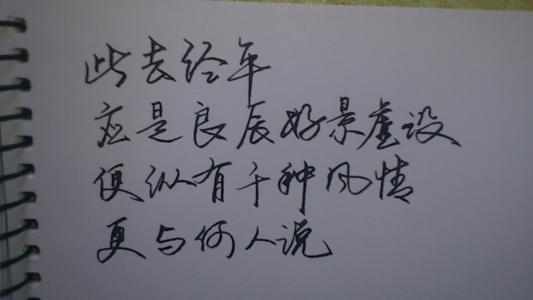 此去经年
应是良辰好景虚设
便纵有千种风情
更与何人说